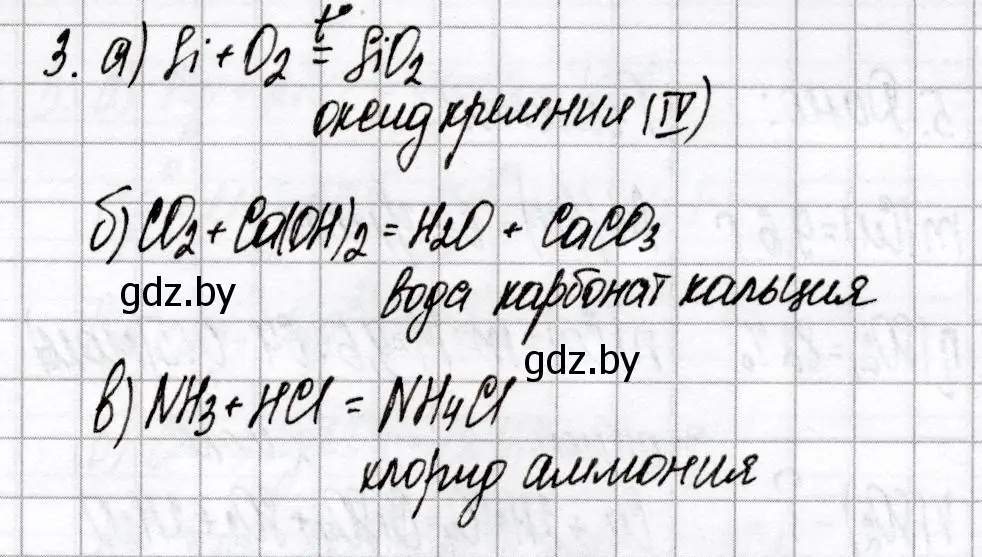 3. а) Si + O₂ t°= SiO₂
оксид кремния (IV)
б) CO₂ + Ca(OH)₂ = H₂O + CaCO₃
gdz.by
вода карбонат кальция
gdz.by
в) NH₃ + HCl = NH₄Cl
хлорид аммония